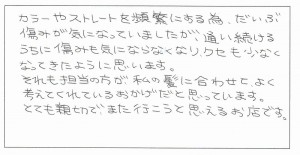 カラーやストレートを頻繁にする為、だいぶ
傷みが気になっていましたが、通い続ける
うちに傷みも気にならなくなり、クセも少なく
なってきたように思います。
それも担当の方が私の髪に合わせて、よく
考えてくれているおかげだと思っています。
とても親切でまた行こうと思えるお店です。